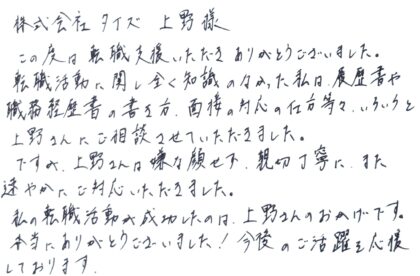 株式会社タイズ 上野様
この度は転職支援いただきありがとうございました。
転職活動に関し全く知識のなかった私は、履歴書や
職務経歴書の書き方、面接の対応の仕方等々、いろいろと
上野さんにご相談させていただきました。
ですが、上野さんは嫌な顔せず、親切丁寧に、また
速やかにご対応いただきました。
私の転職活動が成功したのは、上野さんのおかげです。
本当にありがとうございました!今後のご活躍を応援
しております。